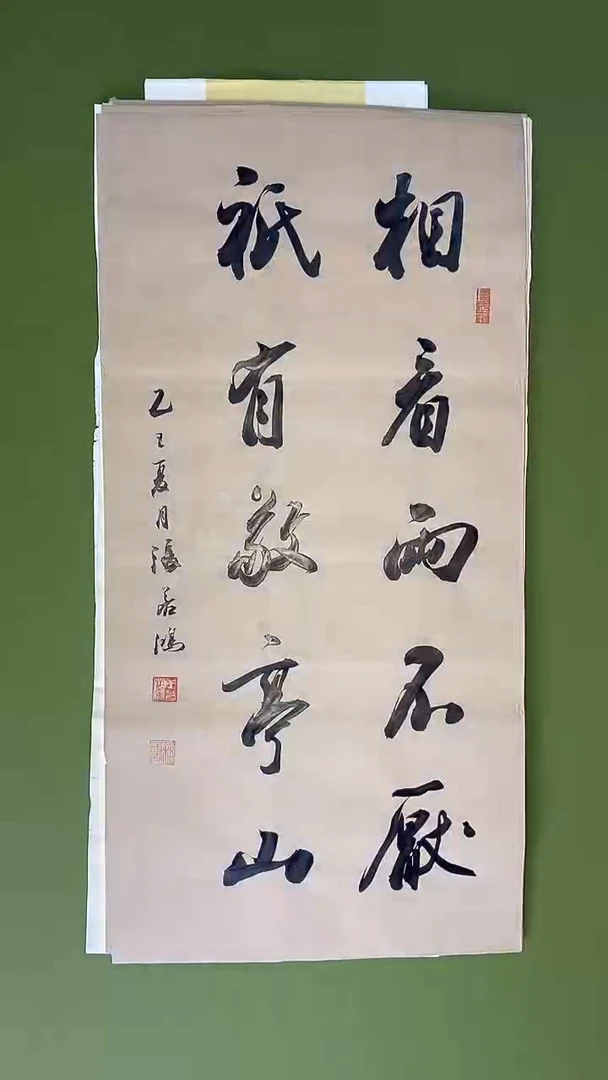 相看兩不厭
祇有敬亭山
乙巳夏月張若鴻